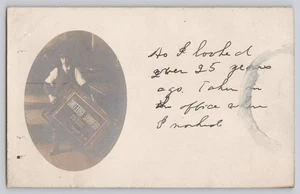 As I looked
over 25 years
ago. Taken in
the office where
I worked